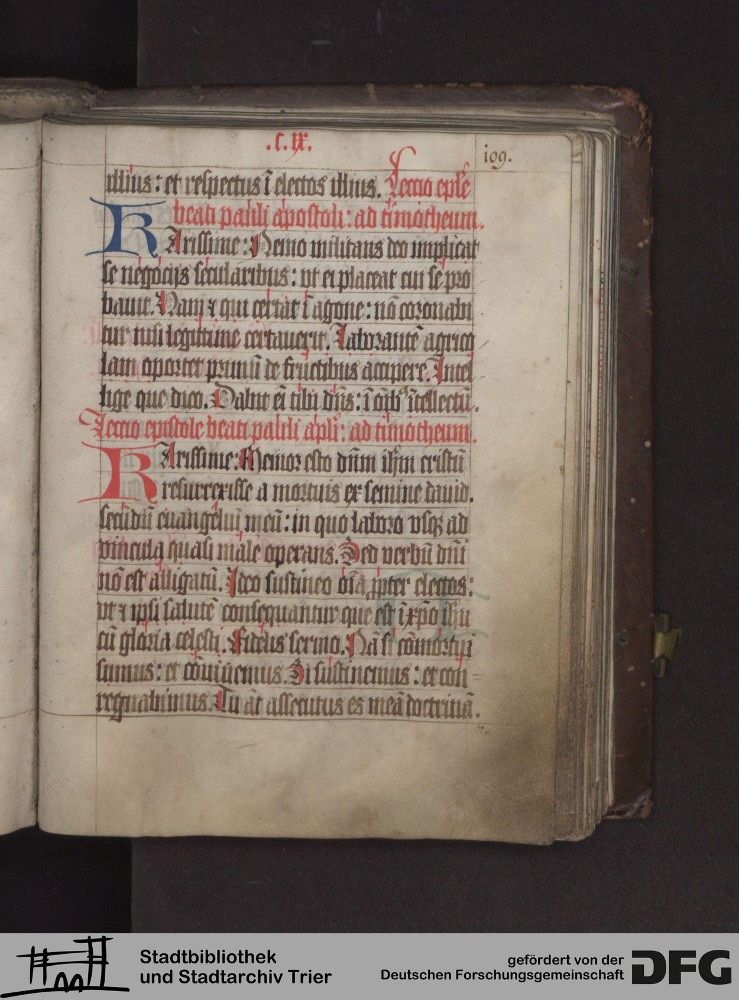 .c.ix.
109.
illius: et respectus ī electos illius. Lectio ep̄le
beati pauli apostoli: ad timotheum.
KArissime: Nemo militans deo implicat
se negocijs secularibus: vt ei placeat cui se pro
bauit. Nam ⁊ qui certat ī agone: nō coronabi
tur nisi legittime certauerit. Laborantē agrico
lam oportet primū de fructibus accipere. Intel
lige que dico. Dabit ei tibi dn̄s: ī oīb ītellectū.
Lectio epistole beati pauli apl̄i: ad timotheum.
KArissime: Memor esto dn̄m ih̄m cristū
resurrexisse a mortuis ex semine dauid.
secūdū euangeliū meū: in quo laboro vsqꝫ ad
vincula quasi male operans. Sed verbū dn̄i
nō est alligatū. Ideo sustineo oīa ꝓpter electos:
vt ⁊ ipsi salutē consequantur que est ī xp̄o ih̄u
cū gloria celesti. Fidelis sermo. Nā si cōmortui
sumus: et cōuiuemus. Si sustinemus: et con-
regnabimus. Tu āt assecutus es meā doctrinā.
Stadtbibliothek
und Stadtarchiv Trier
gefördert von der
Deutschen Forschungsgemeinschaft
DFG